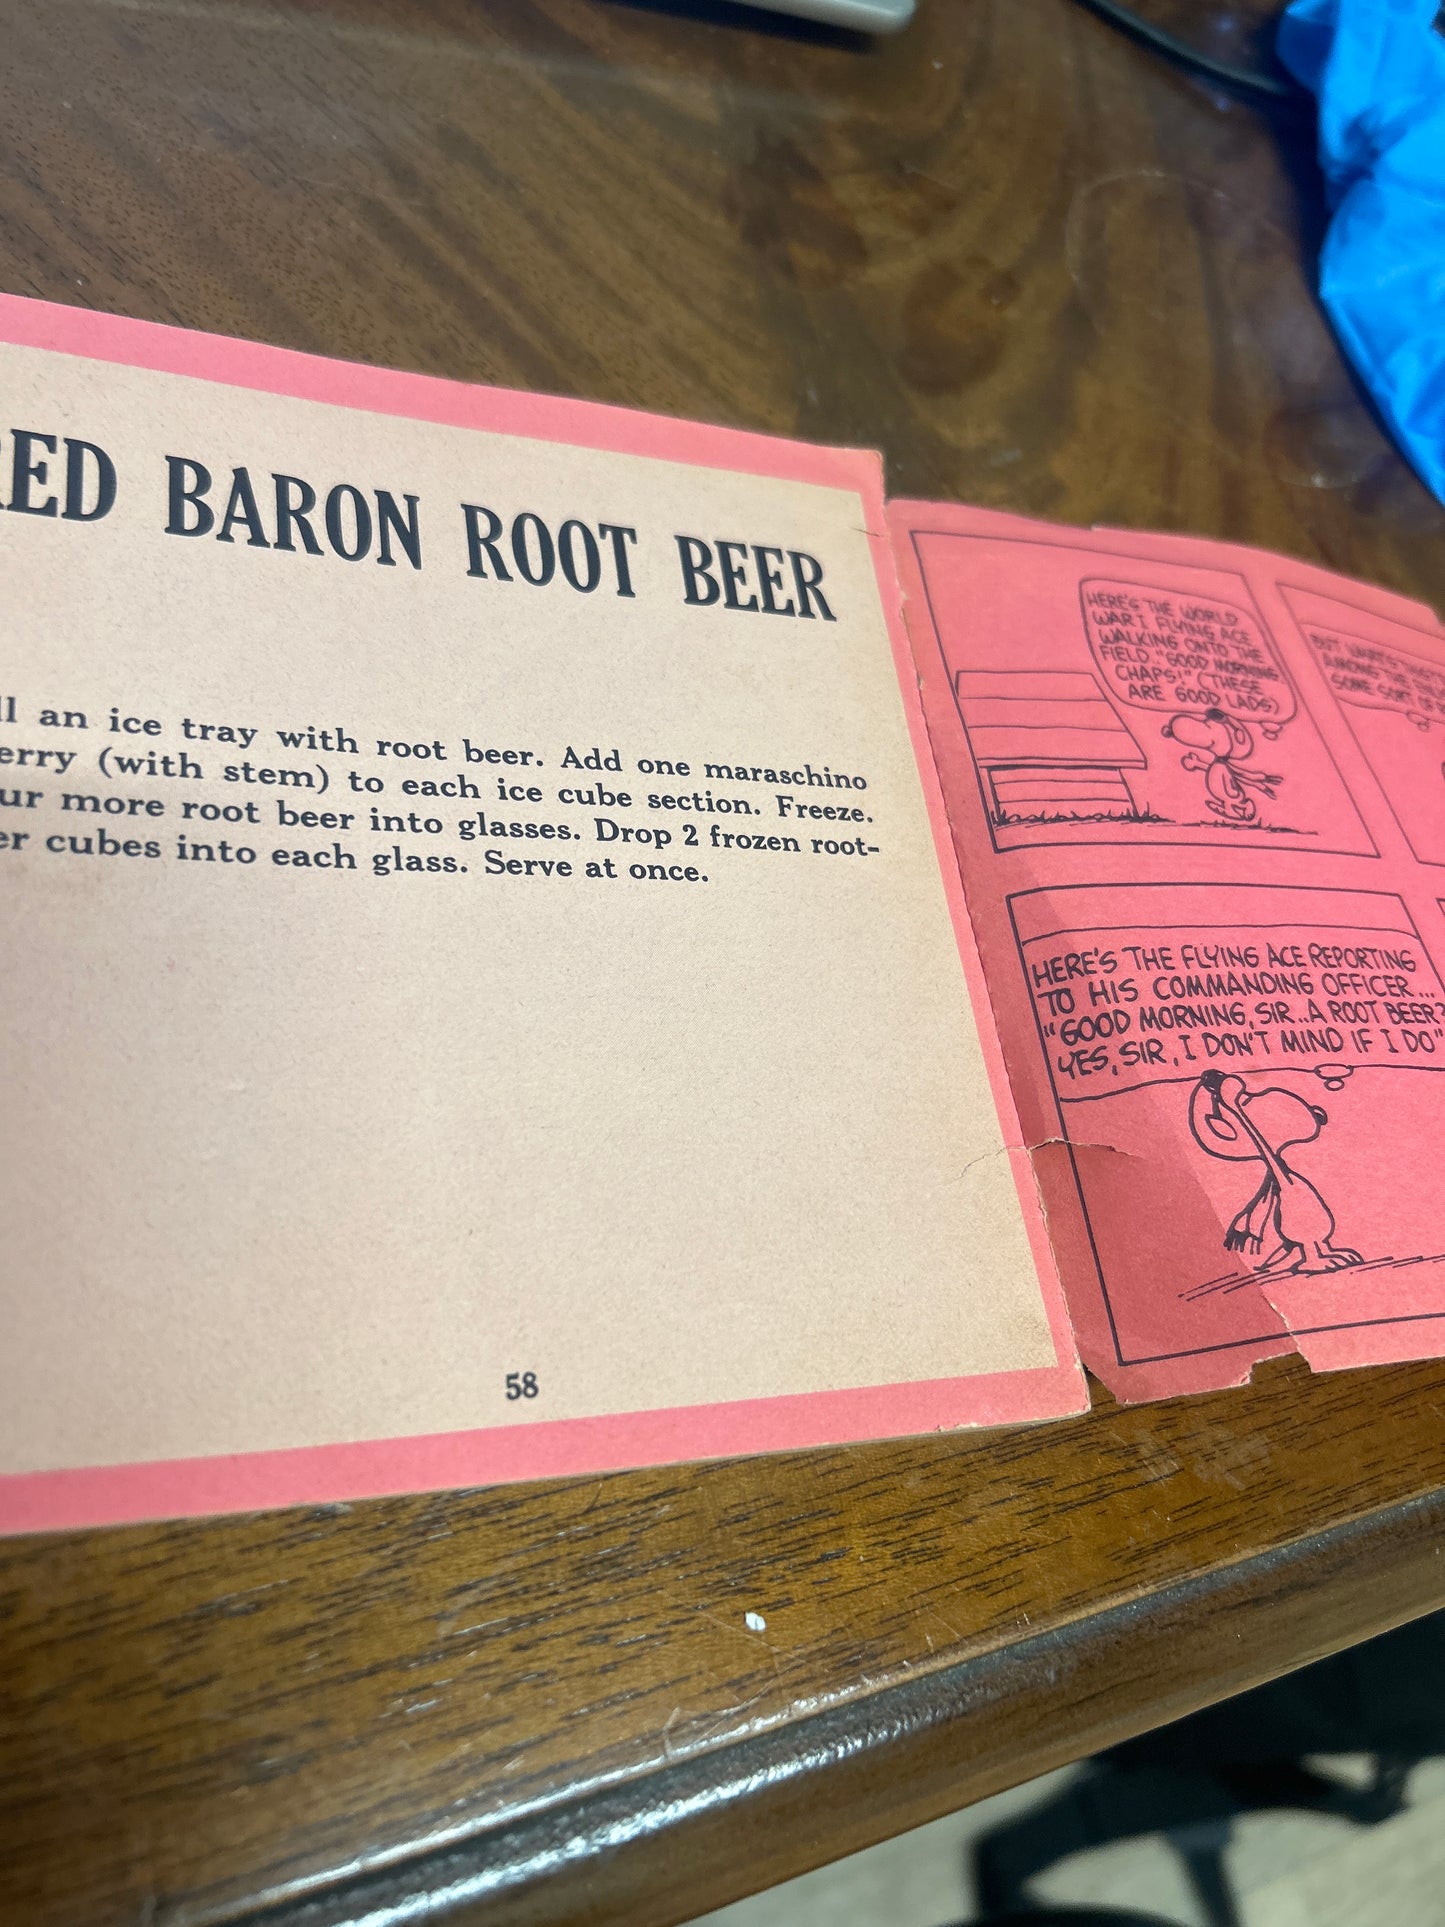 RED BARON ROOT BEER
an ice tray with root beer. Add one maraschino
(with stem) to each ice cube section. Freeze.
more root beer into glasses. Drop 2 frozen root-
cubes into each glass. Serve at once.
58
HERE'S THE WORLD
WAR I FLYING ACE
WALKING ONTO THE
FIELD.."GOOD MORNING
CHAPS!" (THESE
ARE GOOD LADS)
BUT WHAT'S
AMONG THE
SOME SORT OF
HERE'S THE FLYING ACE REPORTING
TO HIS COMMANDING OFFICER...
"GOOD MORNING, SIR..A ROOT BEER?
YES, SIR, I DON'T MIND IF I DO"